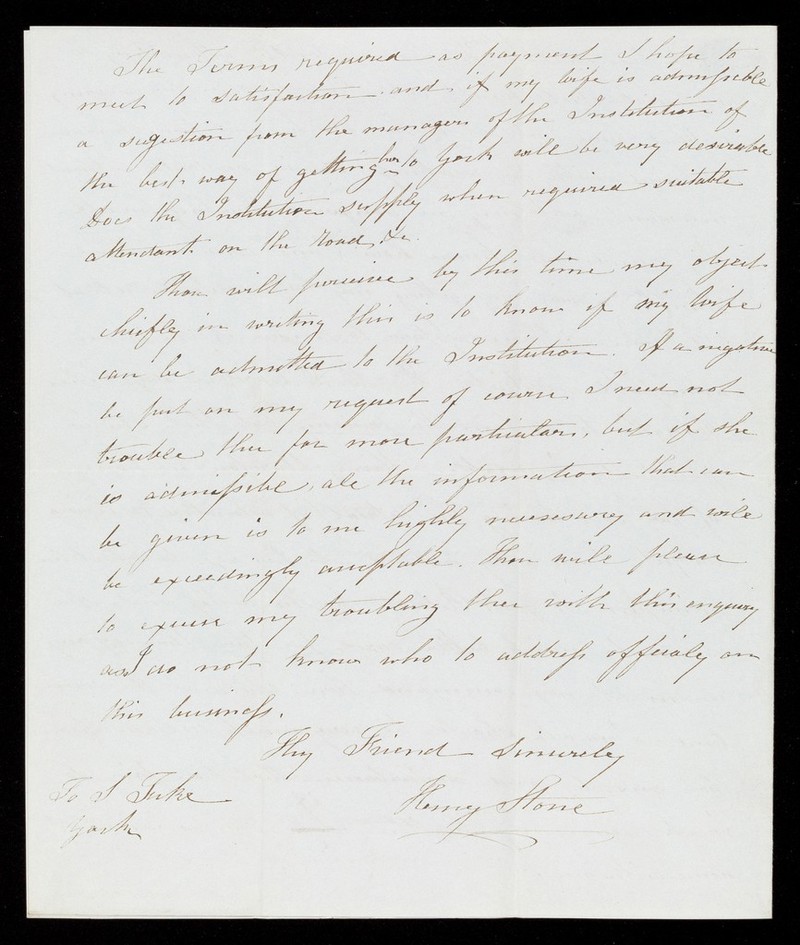 The Terms required as payment I hope to
meet to satisfaction and if my wife is admissible
a sugestion from the managers of the Institution of
the best way of getting her to York will be very desirable
Does the Institution supply when required suitable
attendant on the road, &c.
Thou wilt perceive by this time my object
chiefly in writing this is to know if my Wife
can be admitted to the Institution. If a negative
be put on my request of course I need not
trouble thee for more particulars, but if she
is admissible, all the information that can
be given is to me highly necessarey and will
be exceedingly acceptable. Thou will please
to excuse my troubling thee with this enquiry
as I do not know who to address officialy on
this business.
Thy Friend Sincerely
Henry Stone
To S Tuke
York